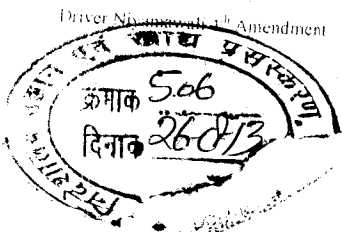 Driver Niyamawali Amendment
उद्यान एवं खाद्य प्रसंस्करण
क्रमांक 506
दिनांक 26-8/13